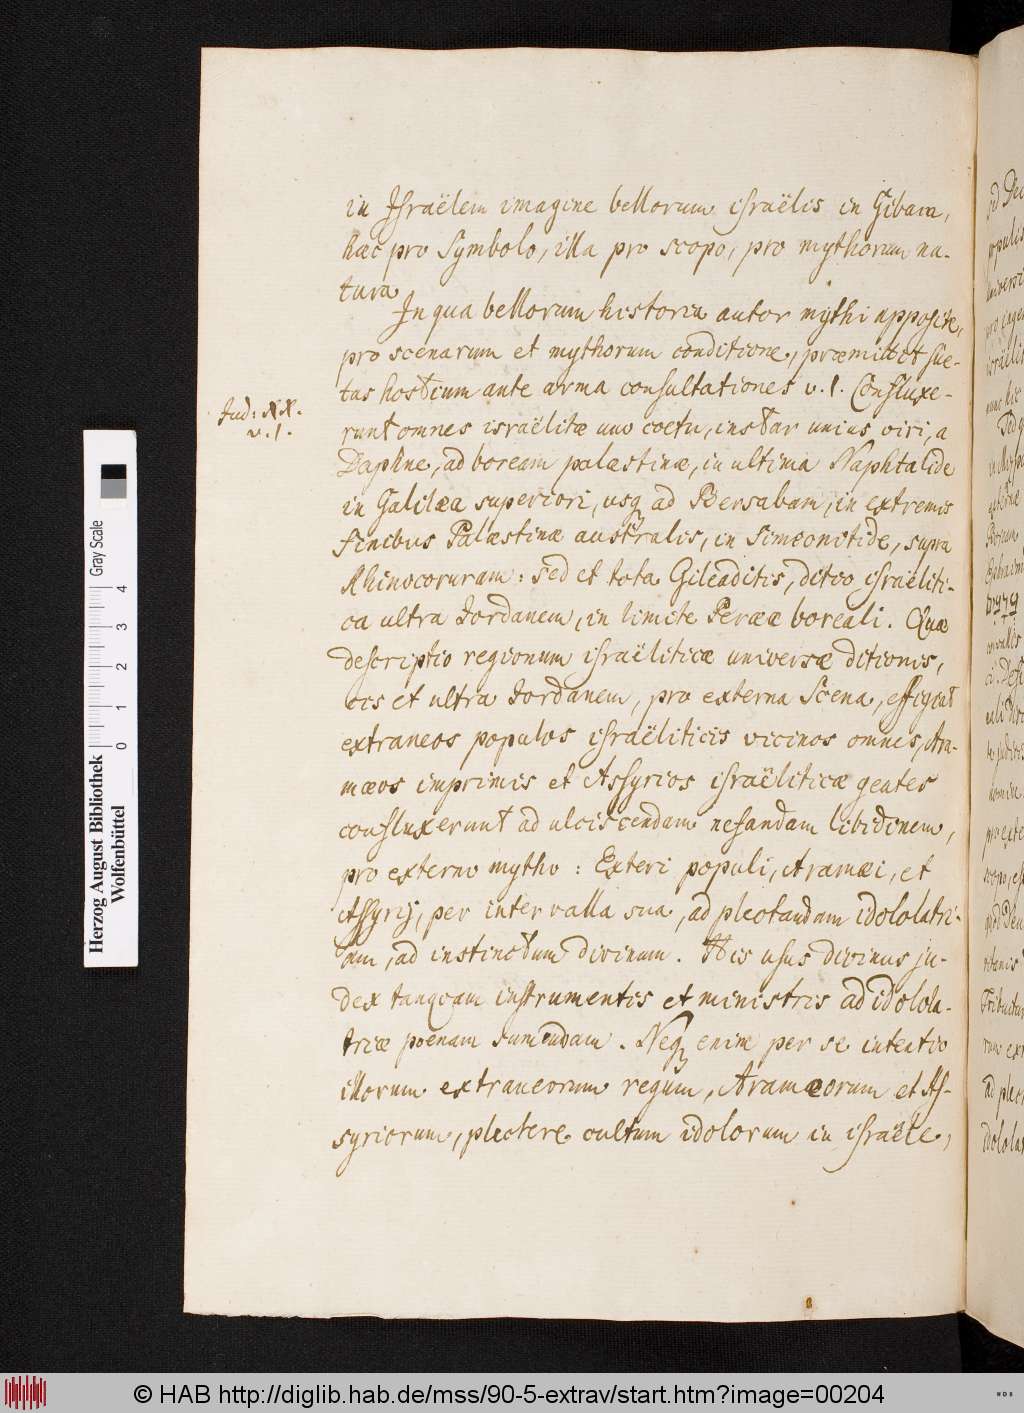 in Israëlem imagine bellorum israëlis in Gibaea,
haec pro Symbolo, illa pro scopo, pro mythorum na-
tura.
In qua bellorum historia autor mythi apposite,
pro scenarum et mythorum conditione, praemittit sue-
tas hostium ante arma consultationes v. 1. Confluxe-
Jud: XX.
v. 1.
runt omnes israëlitae uno coetu, instar unius viri, a
Daphne, ad boream palaestinae, in ultima Naphtalide
in Galilaea superiori, usq ad Bersabam, in extremis
finibus Palaestinae australis, in Simeonitide, supra
Rhinocoruram: sed et tota Gileaditis, ditio israëliti-
ca ultra Jordanem, in limite Peraeae boreali. Quae
descriptio regionum israëliticae universae ditionis,
cis et ultra Jordanem, pro externa Scena, effigiat
extraneos populos israëliticis vicinos omnes, Ara-
maeos imprimis et Assyrios israëliticae gentes
confluxerunt ad ulciscendam nefandam libidinem,
pro externo mytho: Exteri populi, Aramaei, et
Assyrij, per intervalla sua, ad plectandam idololatri-
am, ad instinctum divinum. His usus divinus ju-
dex tanquam instrumentis et ministris ad idolola-
triae poenam sumendam. Neq enim per se intentio
illorum extraneorum regum, Aramaeorum et As-
syriorum, plectere cultum idolorum in israële,
Herzog August Bibliothek
Wolfenbüttel
Gray Scale
0 1 2 3 4
© HAB http://diglib.hab.de/mss/90-5-extrav/start.htm?image=00204